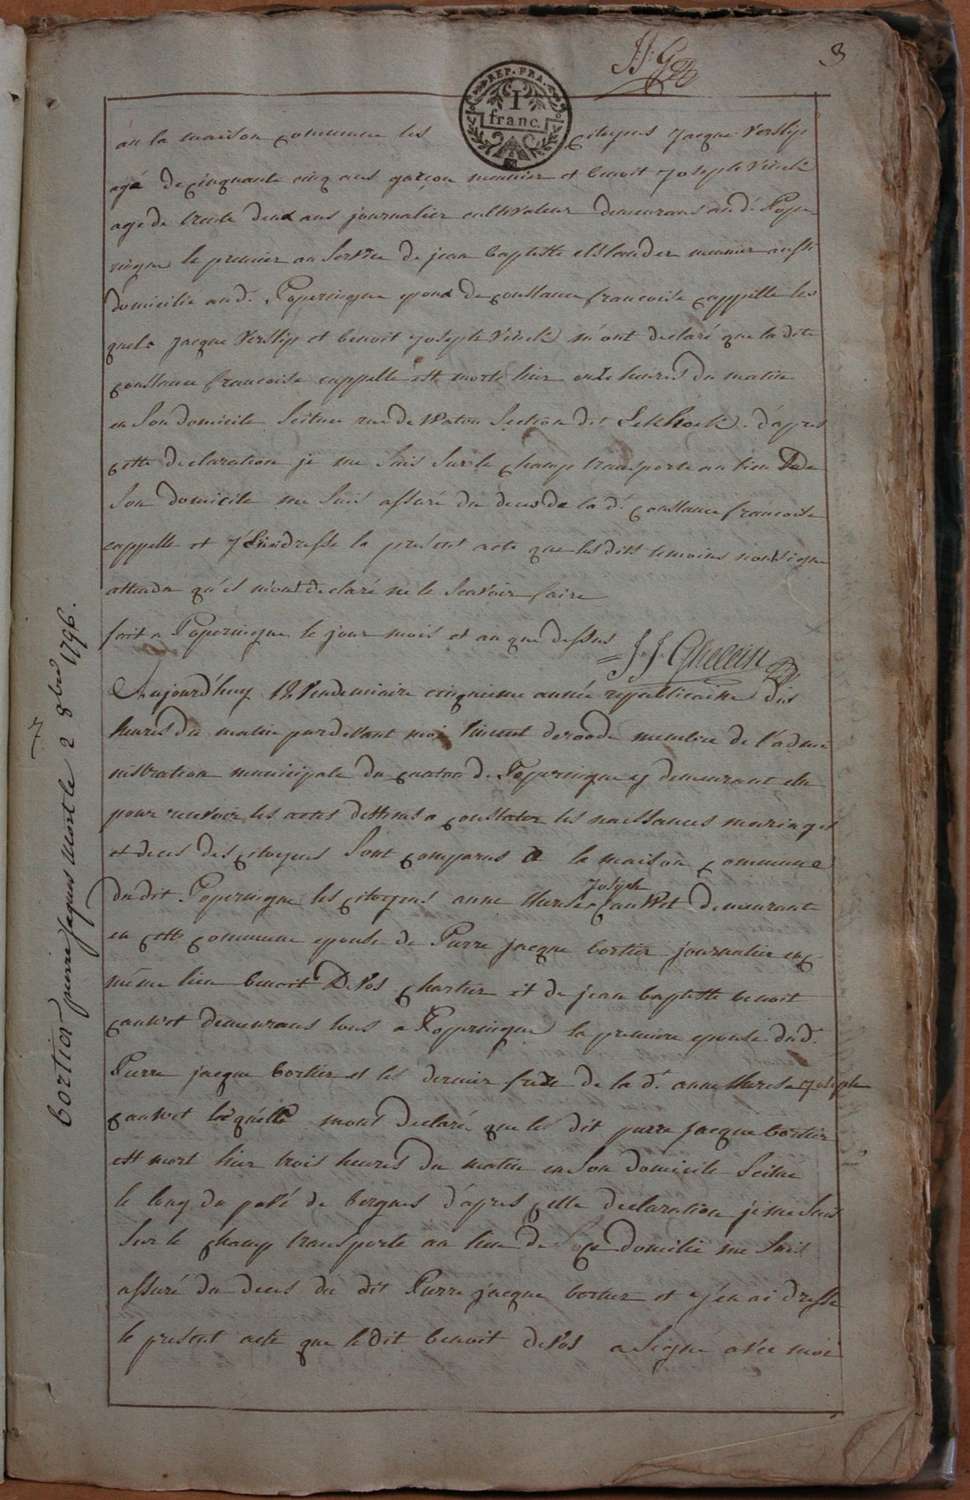 J.J.G
3
REP. FRA.
1
franc.
en la maison commune les citoyens Jacque Verslip
agé de cinquante cinq ans garçon meunier et benoit Joseph Virick
agé de trente deux ans journalier cultivateur demeurans au d. Pope
ringue le premier au service de jean baptiste elslander meunier aussi
domicilie au d. Poperingue epoux de constance francoise cappelle les
quels Jacque Verslip et benoit Joseph Virick m'ont declaré que la dite
constance francoise cappelle est morte hier onze heures du matin
en son domicile scitue rue de Watou Section dit Lekhoek. d'apres
cette declaration je me suis sur le champ transporte au lieu de
son domicile me suis assuré du deces de la d. constance francoise
cappelle et j'en dresse la present acte que les dits temoins n'ont signe
attendu qu'il m'ont declaré ne le scavoir faire
fait a Poperingue le jour mois et an que dessus J. J. Ghelein
Aujourd'huy 12 Vendemiaire cinquieme année republicaine dix
heures du matin pardevant moi Vincent deroode membre de l'admi
nistration municipale du canton de Poperingue y demeurant elu
pour recevoir les actes destines a constater les naissances mariages
et deces des citoyens Sont comparus a la maison commune
du dit Poperingue les citoyens anne therese Joseph cauwet demeurante
en cette commune epouse de Pierre jacque bortier journalier au
même lieu benoit DeVos chartier et de jean baptiste benoit
cauwet demeurans tous a Poperingue la premiere epouse du d.
Pierre jacque bortier et les dernier frere de la d. anne therese Joseph
cauwet laquelle mont declaré que les dit pierre jacque bortier
est mort hier trois heures du matin en son domicile scitue
le long du pavé de bergues d'apres cette declaration je me suis
sur le champ transporte au lieu de ce domicilie me suis
assuré du deces du dit Pierre jacque bortier et j'en ai dresse
le present acte que le dit benoit deVos a signe avec moi
7
bortier pierre Jaques mort le 2 8bre 1796.